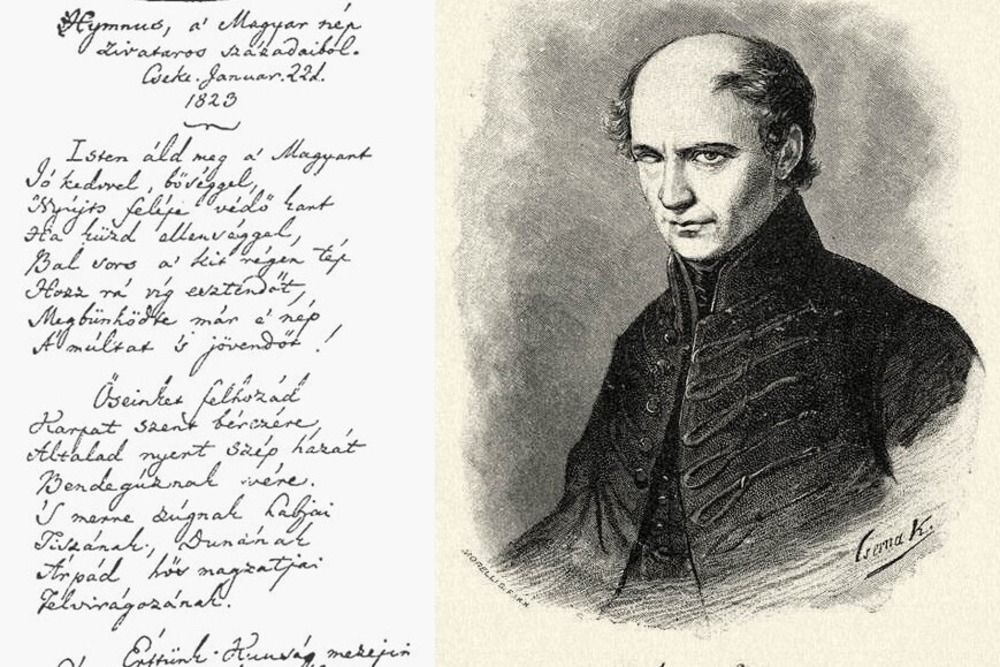 Hymnus, a' Magyar nép
zivataros századaiból.
Cseke. Januar. 22d.
1823
Isten áld meg a' Magyart
Jó kedvvel, bőséggel,
Nyújts feléje védő kart
Ha küzd ellenséggel,
Bal sors a' kit régen tép
Hozz rá víg esztendőt,
Megbünhödte már e' nép
A' múltat 's jövendőt!
Őseinket felhozád
Kárpát szent bérczére,
Általad nyert szép hazát
Bendegúznak vére.
'S merre zúgnak habjai
Tiszának, Dunának
Árpád hős magzatjai
Felvirágozának.
Értünk Kunság mezején
Cserna K.
MORELLI G. F.